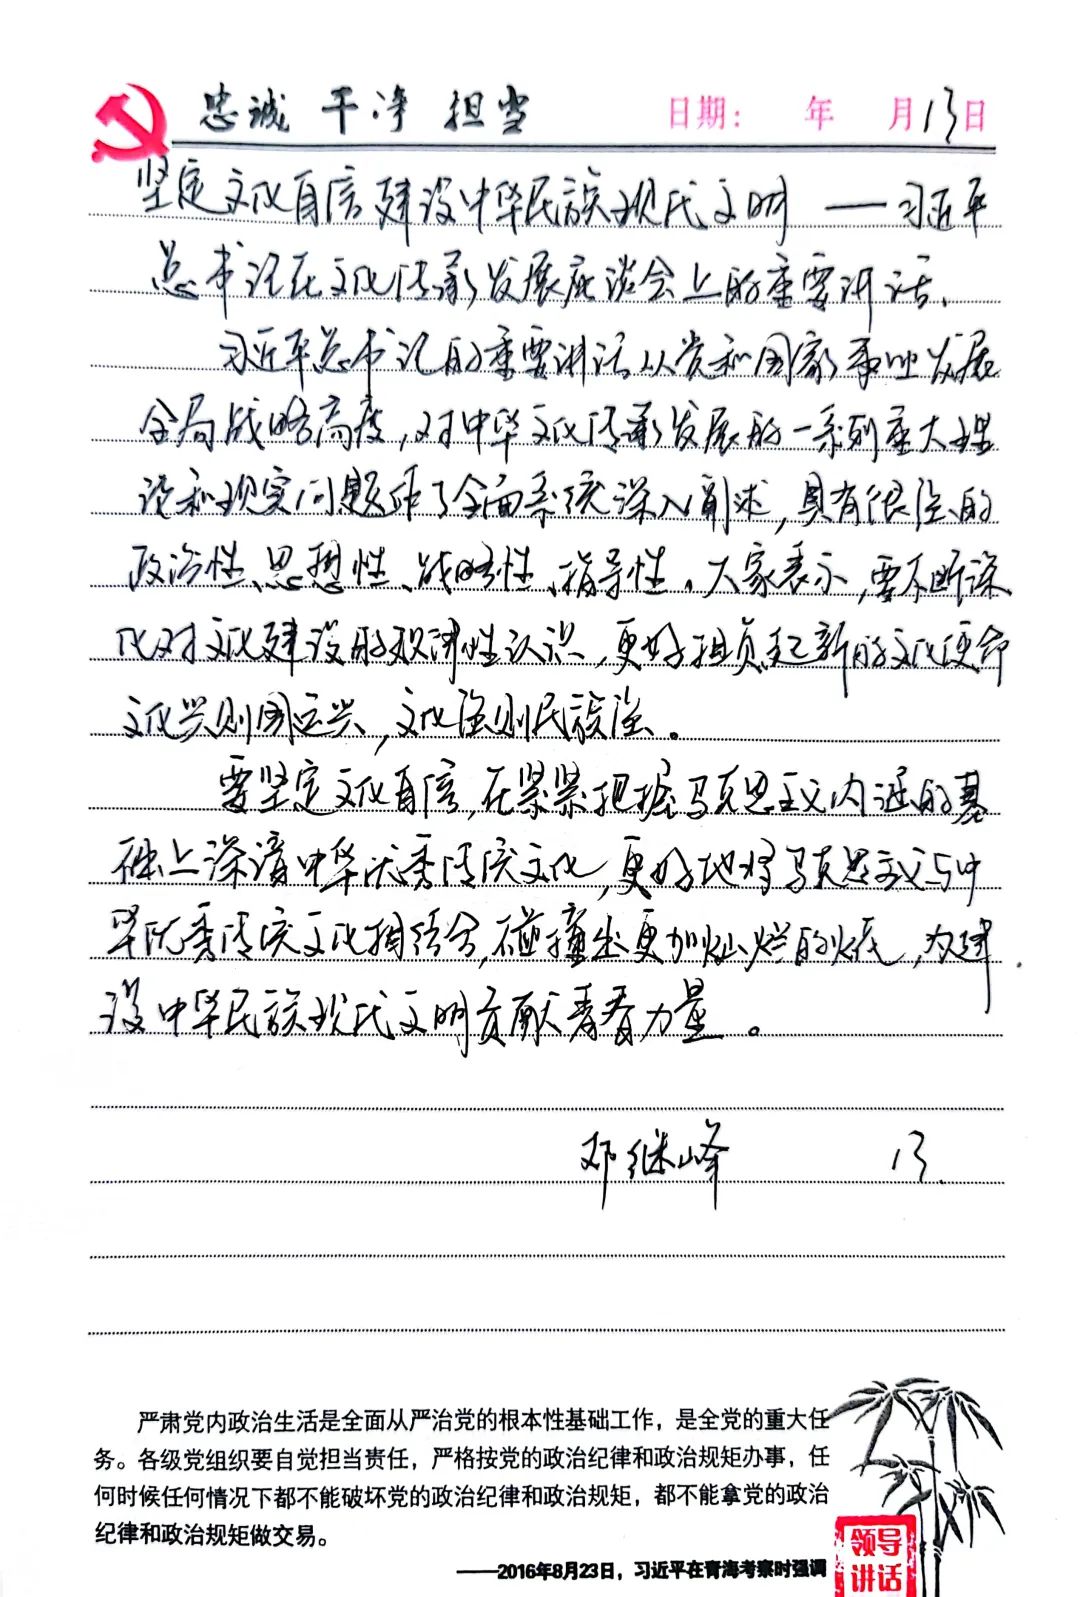 忠诚 干净 担当 日期： 年 月13日
坚定文化自信 建设中华民族现代文明 ——习近平
总书记在文化传承发展座谈会上的重要讲话.
习近平总书记的重要讲话从党和国家事业发展
全局战略高度，对中华文化传承发展的一系列重大理
论和现实问题作了全面系统深入阐述，具有很强的
政治性、思想性、战略性、指导性。大家表示，要不断深
化对文化建设的规律性认识，更好担负起新的文化使命
文化兴则国运兴，文化强则民族强。
要坚定文化自信，在紧紧把握马克思主义内涵的基
础上深谙中华优秀传统文化，更好地将马克思主义与中
华优秀传统文化相结合，碰撞出更加灿烂的火花，为建
设中华民族现代文明贡献青春力量。
邓继峰 13.
严肃党内政治生活是全面从严治党的根本性基础工作，是全党的重大任
务。各级党组织要自觉担当责任，严格按党的政治纪律和政治规矩办事，任
何时候任何情况下都不能破坏党的政治纪律和政治规矩，都不能拿党的政治
纪律和政治规矩做交易。
——2016年8月23日，习近平在青海考察时强调
领导
讲话